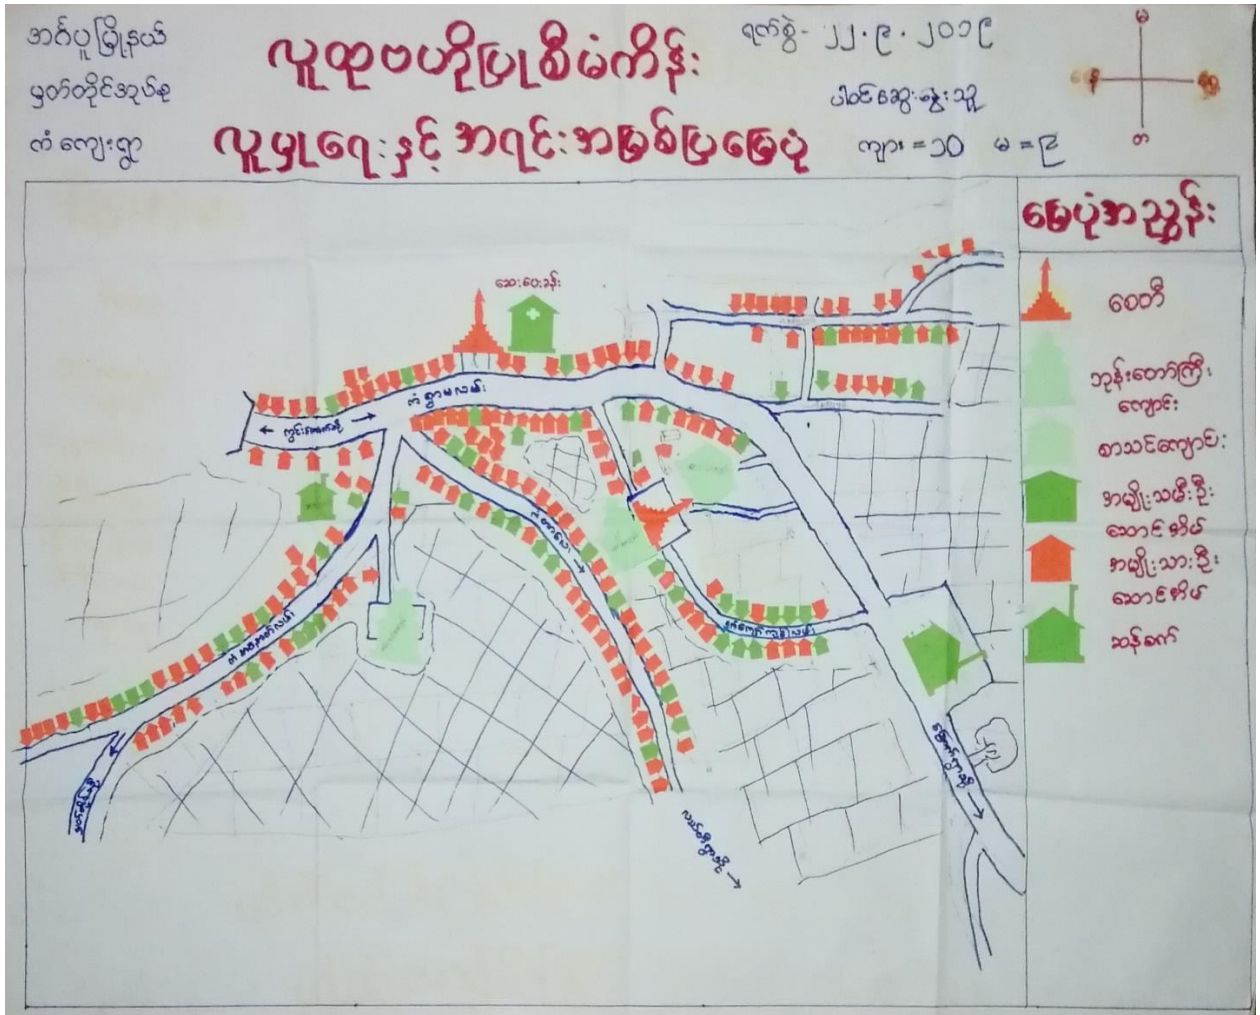 အင်္ဂပူမြို့နယ်
မှတ်တိုင်အုပ်စု
ကံကျေးရွာ
လူထုဗဟိုပြုစီမံကိန်း
လူမှုရေးနှင့် အရင်းအမြစ်ပြမြေပုံ
ရက်စွဲ - ၂၂.၉.၂၀၁၉
ပါဝင်ဆွေးနွေးသူ
ကျား = ၁၀ မ = ၉
မ
တ
မြေပုံအညွှန်း
စေတီ
ဘုန်းတော်ကြီး
ကျောင်း
စာသင်ကျောင်း
အမျိုးသမီးဦး
ဆောင်အိမ်
အမျိုးသားဦး
ဆောင်အိမ်
ဆန်စက်
ဆေးပေးခန်း
ကံရွာမလမ်း